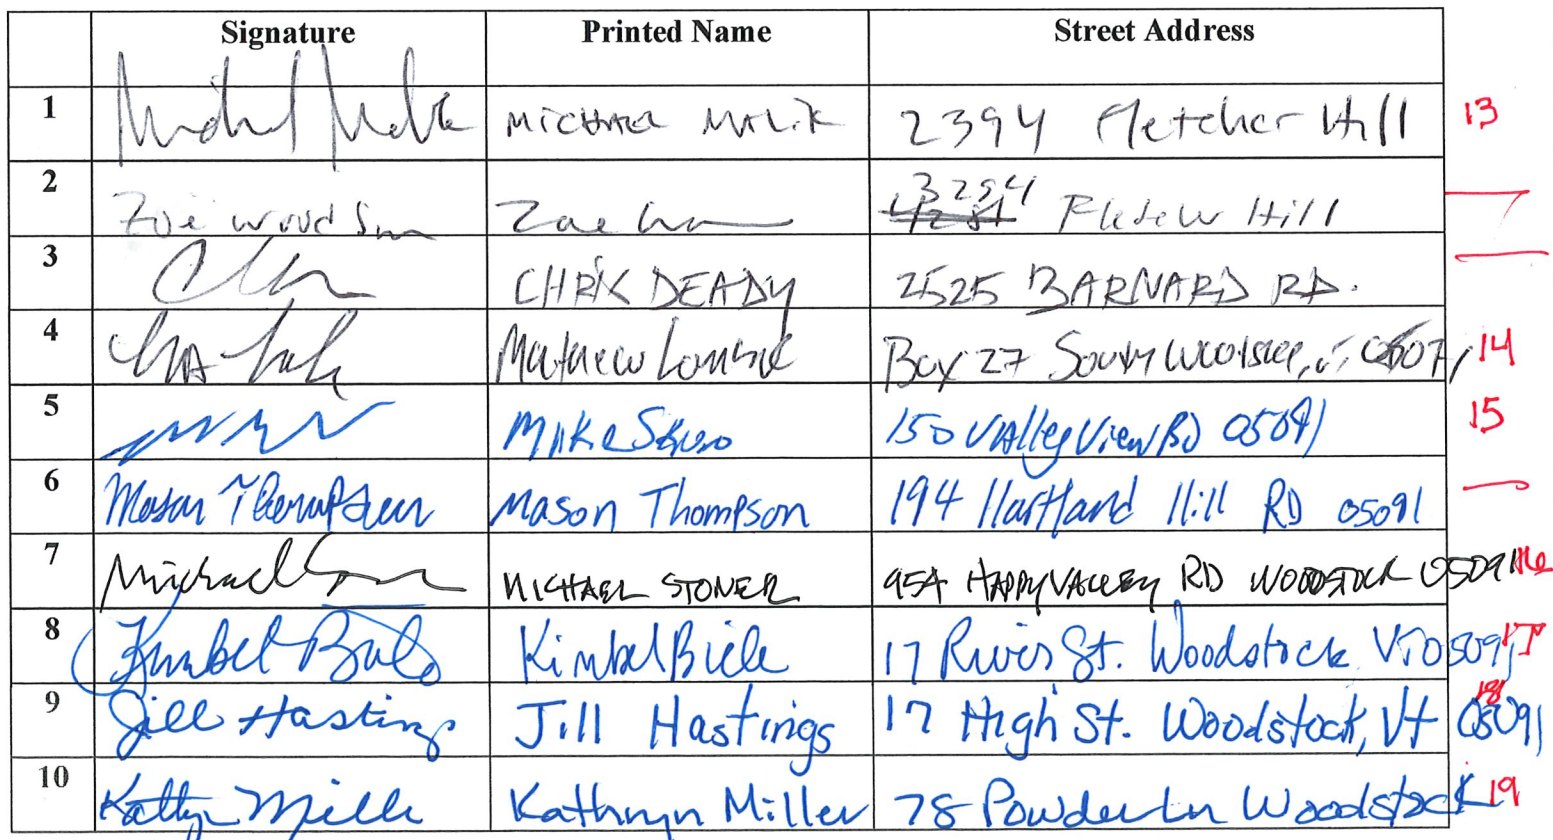 Signature Printed Name Street Address
1 Michael Malik MICHAEL MALIK 2394 Fletcher Hill 13
2 Zoe Woodson Zoe 3294 Hill
3 CHRIS DEADY 2525 BARNARD RD.
4 Matthew Box 27 South Woodstock, 05071 14
5 Mike 150 Valley View RD 05091 15
6 Mason Thompson Mason Thompson 194 Hartland Hill RD 05091
7 Michael MICHAEL STONER 954 HAPPY VALLEY RD WOODSTOCK 05091 16
8 Kimbel Kimbel 17 River St. Woodstock VT 05091 17
9 Jill Hastings Jill Hastings 17 High St. Woodstock, Vt 05091 18
10 Kathryn Miller Kathryn Miller 78 Powder Ln Woodstock 19